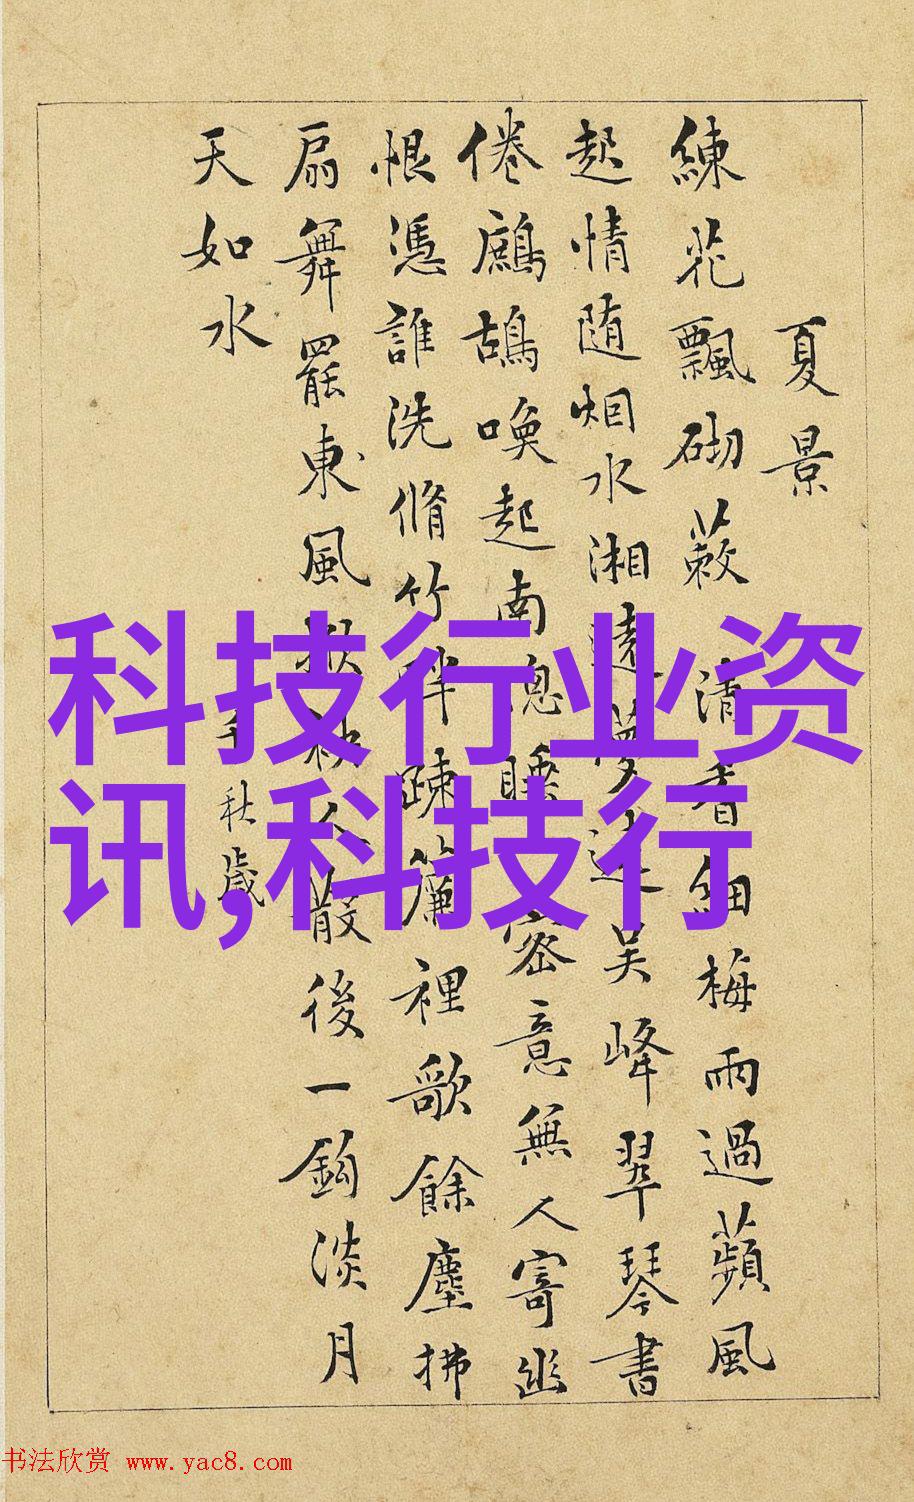 夏景
練花飄砌蔌清香細梅雨過蘋風
起情随烟水湘遠夢遶吳峰翠琴書
倦鷓鴣喚起南窓睡密意無人寄幽
恨憑誰洗脩竹畔疎簾裡歌餘塵拂
扇舞罷東風掀袂人散後一鈎淡月
天如水
千秋歲
科技行业资
讯,科技行
书法欣赏 www.yac8.com